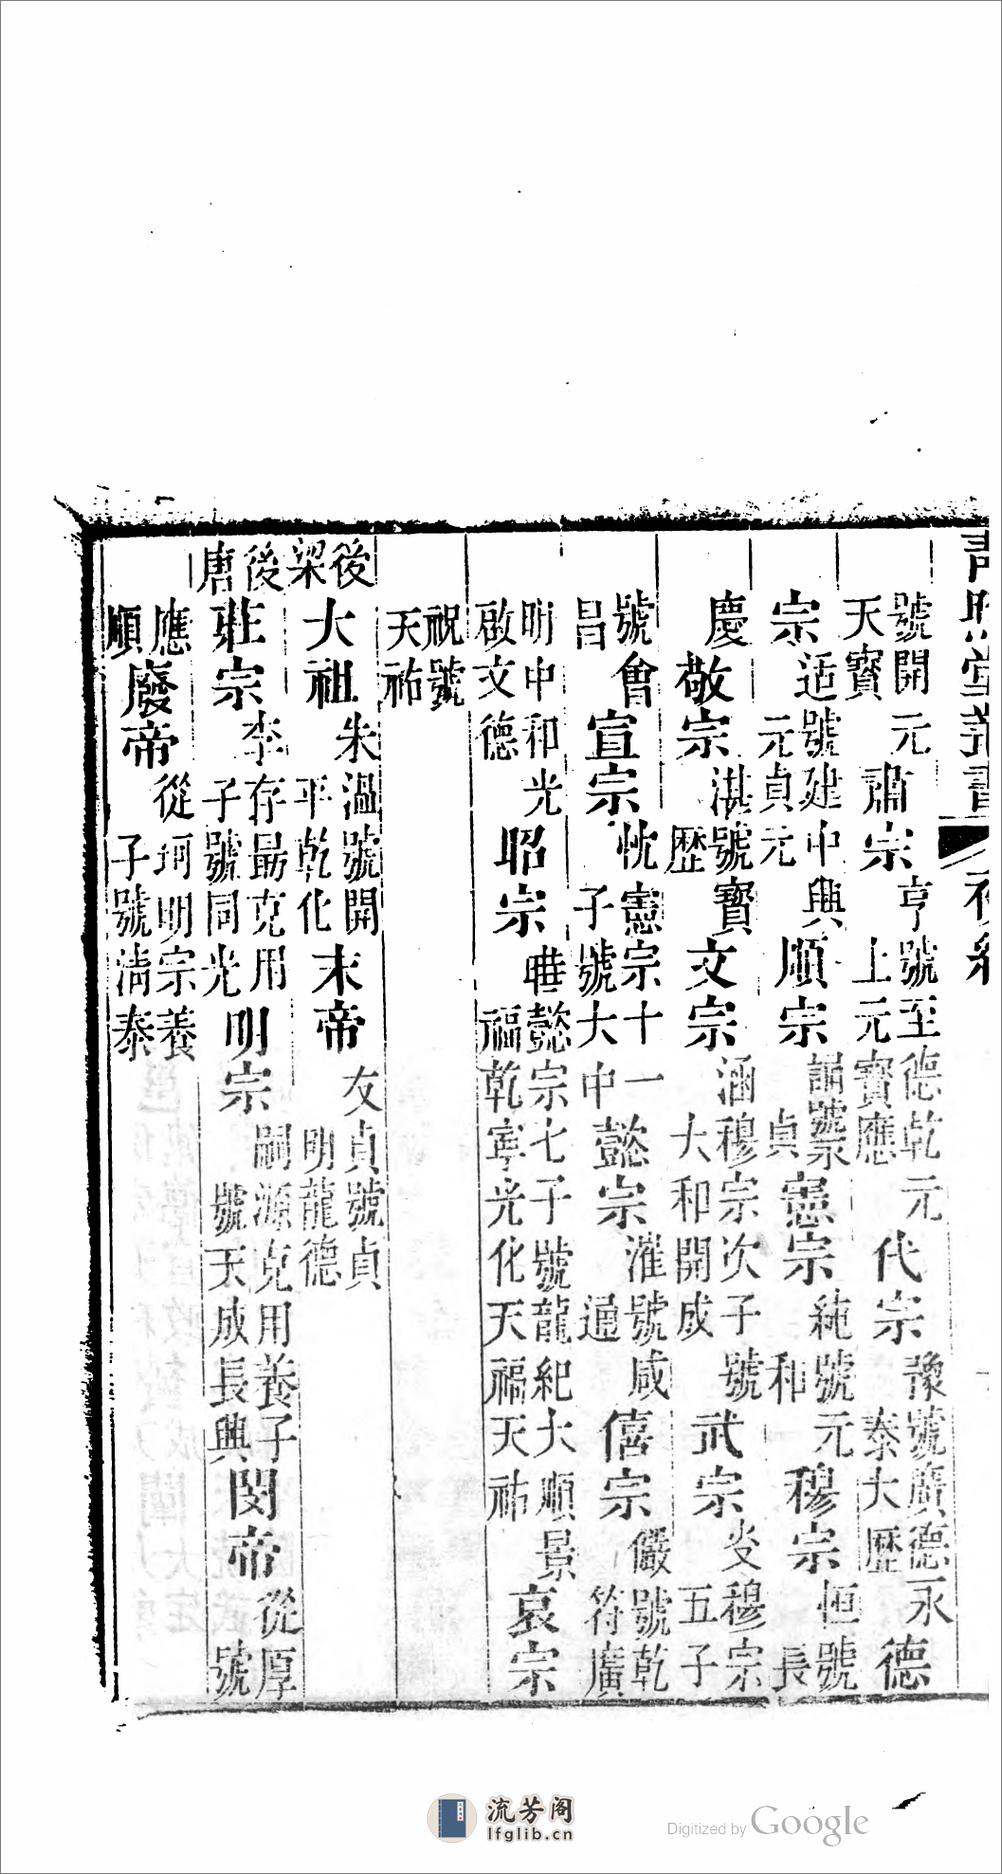 堂
號開元天寶肅宗亨號至德乾元上元寶應代宗豫號廣德永泰大歷德
宗适號建中興元貞元順宗誦號永貞憲宗純號元和穆宗恒號長
慶敬宗湛號寶歷文宗涵穆宗次子號大和開成武宗炎穆宗五子
號會昌宣宗忱憲宗十一子號大中懿宗漼號咸通僖宗儼號乾符廣
明中和光啟文德昭宗曄懿宗七子號龍紀大順景福乾寧光化天福天祐哀宗
祝號天祐
後梁大祖朱溫號開平乾化末帝友貞號貞明龍德
後唐莊宗李存朂克用子號同光明宗嗣源克用養子號天成長興閔帝從厚號
應順廢帝從珂明宗養子號清泰
流芳阁
lfglib.cn
Digitized by Google